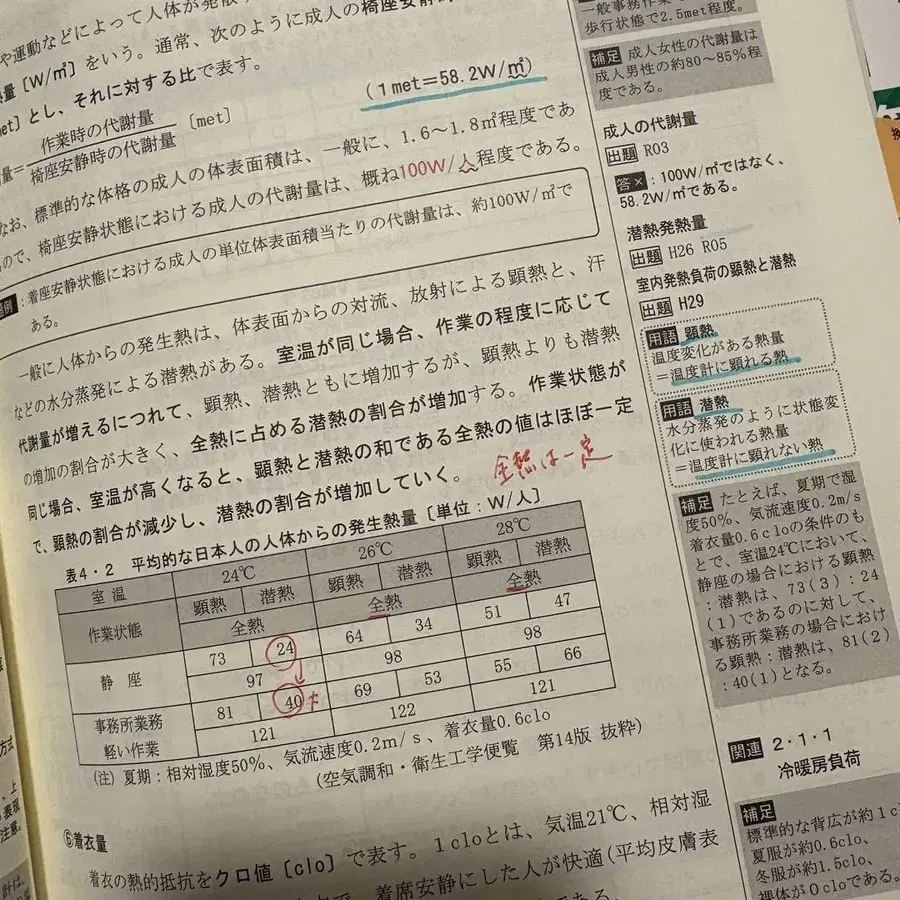 や運動などによって人体が発散
量〔W/㎡〕をいう。通常、次のように成人の椅座安静
met〕とし、それに対する比で表す。
(1met=58.2W/㎡)
量=作業時の代謝量
椅座安静時の代謝量
〔met〕
なお、標準的な体格の成人の体表面積は、一般に、1.6~1.8㎡程度であ
ので、椅座安静状態における成人の代謝量は、概ね100W/人程度である。
題例:着座安静状態における成人の単位体表面積当たりの代謝量は、約100W/㎡で
ある。
一般に人体からの発生熱は、体表面からの対流、放射による顕熱と、汗
などの水分蒸発による潜熱がある。室温が同じ場合、作業の程度に応じて
代謝量が増えるにつれて、顕熱、潜熱ともに増加するが、顕熱よりも潜熱
の増加の割合が大きく、全熱に占める潜熱の割合が増加する。作業状態が
同じ場合、室温が高くなると、顕熱と潜熱の和である全熱の値はほぼ一定
で、顕熱の割合が減少し、潜熱の割合が増加していく。
全熱は一定
表4・2 平均的な日本人の人体からの発生熱量〔単位:W/人〕
室温 24℃ 26℃ 28℃
作業状態 顕熱 潜熱 顕熱 潜熱 顕熱 潜熱
全熱 全熱 全熱
静座 73 24 64 34 51 47
97 98 98
事務所業務 81 40 69 53 55 66
軽い作業 121 122 121
(注) 夏期:相対湿度50%、気流速度0.2m/s、着衣量0.6clo
(空気調和・衛生工学便覧 第14版 抜粋)
⑥着衣量
着衣の熱的抵抗をクロ値〔clo〕で表す。1cloとは、気温21℃、相対湿
着席安静にした人が快適(平均皮膚表
である。
一般事務作業
歩行状態で2.5met程度。
補足 成人女性の代謝量は
成人男性の約80~85%程
度である。
成人の代謝量
出題 R03
答×:100W/㎡ではなく、
58.2W/㎡である。
潜熱発熱量
出題 H26 R05
室内発熱負荷の顕熱と潜熱
出題 H29
用語 顕熱
温度変化がある熱量
=温度計に顕れる熱
用語 潜熱
水分蒸発のように状態変
化に使われる熱量
=温度計に顕れない熱
補足 たとえば、夏期で湿
度50%、気流速度0.2m/s
着衣量0.6cloの条件のも
とで、室温24℃において、
静座の場合における顕熱
:潜熱は、73(3):24
(1)であるのに対して、
事務所業務の場合におけ
る顕熱:潜熱は、81(2)
:40(1)となる。
関連 2・1・1
冷暖房負荷
補足
標準的な背広が約1cl
夏服が約0.6clo、
冬服が約1.5clo、
裸体が0cloである。
方式
上
表現
注意